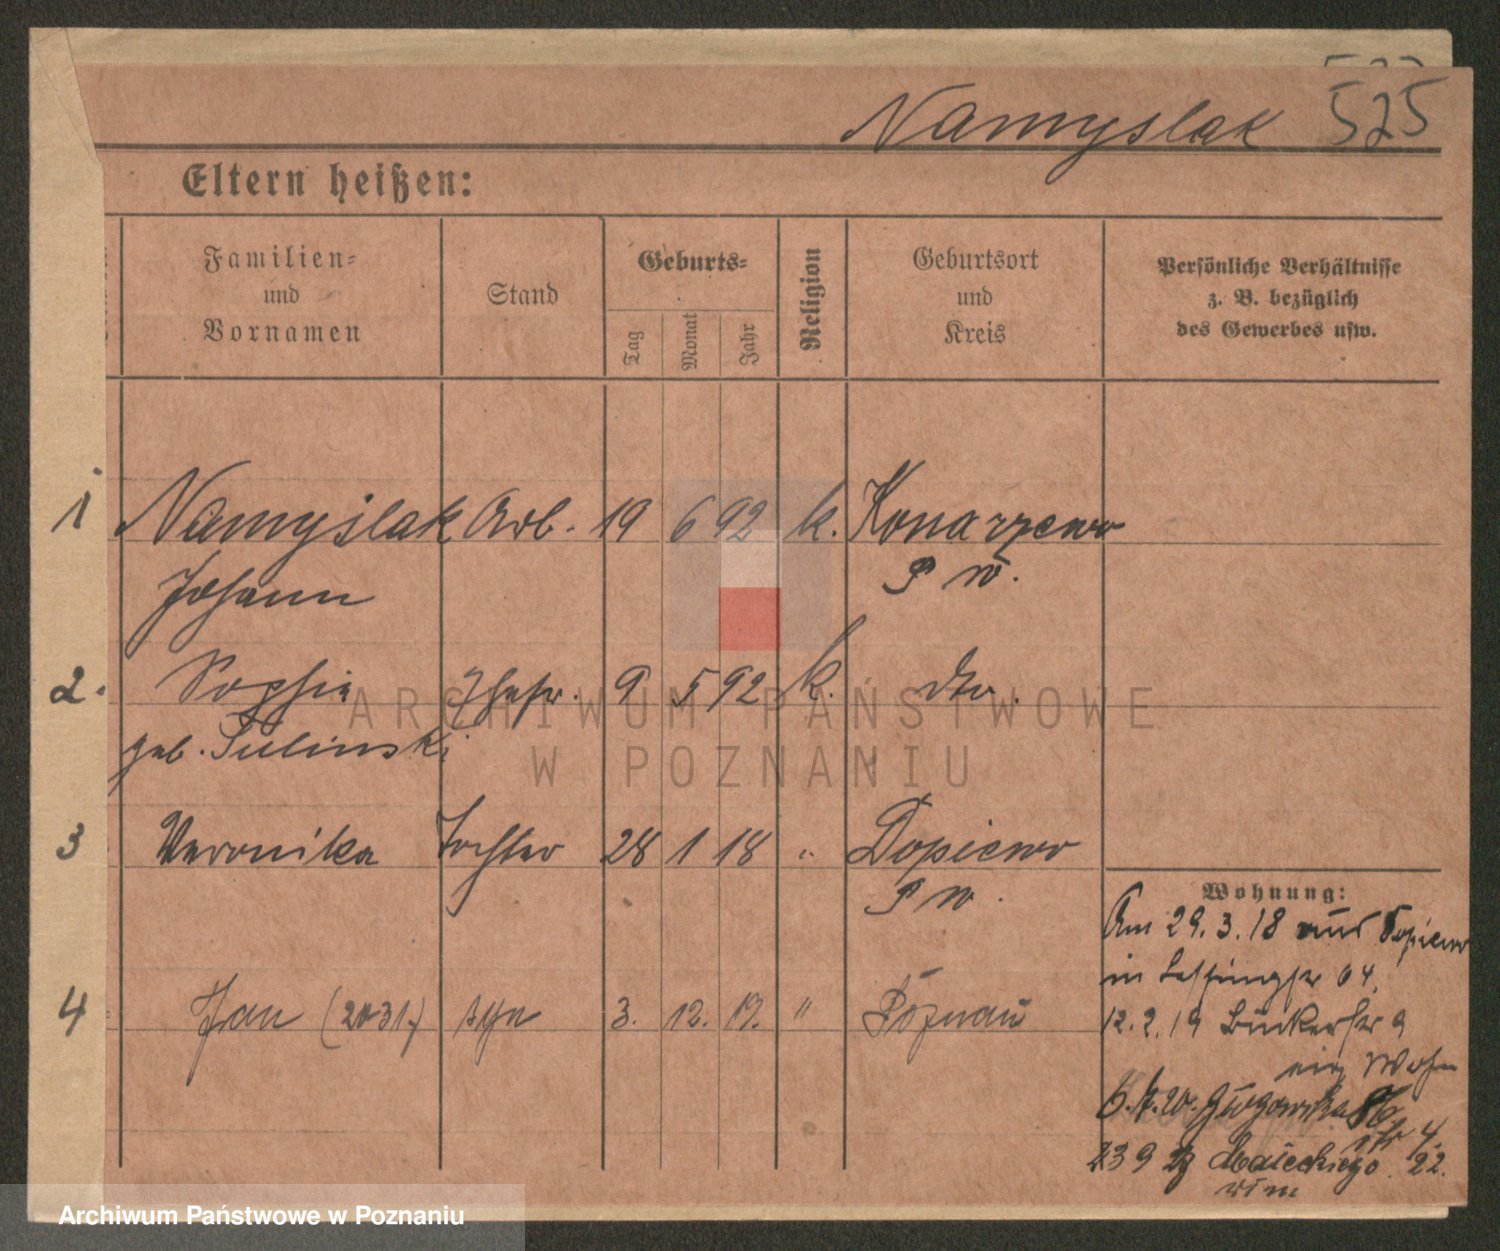 Namyslak 525
Eltern heißen:
Familien-
und
Vornamen
Stand
Geburts-
Tag
Monat
Jahr
Religion
Geburtsort
und
Kreis
Persönliche Verhältnisse
z. B. bezüglich
des Gewerbes usw.
1 Namyslak Arb. 19 6 92 k. Konarzewo
Johann P W.
2. Sophie Ehefr. 9 5 92 k. dto.
geb. Sulinski
3 Veronika Tochter 28 1 18 " Dopiewo
P W.
4 Jan (2031.) syn 3. 12. 19. " Poznań
Wohnung:
Am 29. 3. 18 aus Dopiewo
in Lessingstr 64.
12. 2. 19 Bäckerstr 9
Wohn
20. 
23 9 Małeckiego 22.
ARCHIWUM PAŃSTWOWE
W POZNANIU
Archiwum Państwowe w Poznaniu